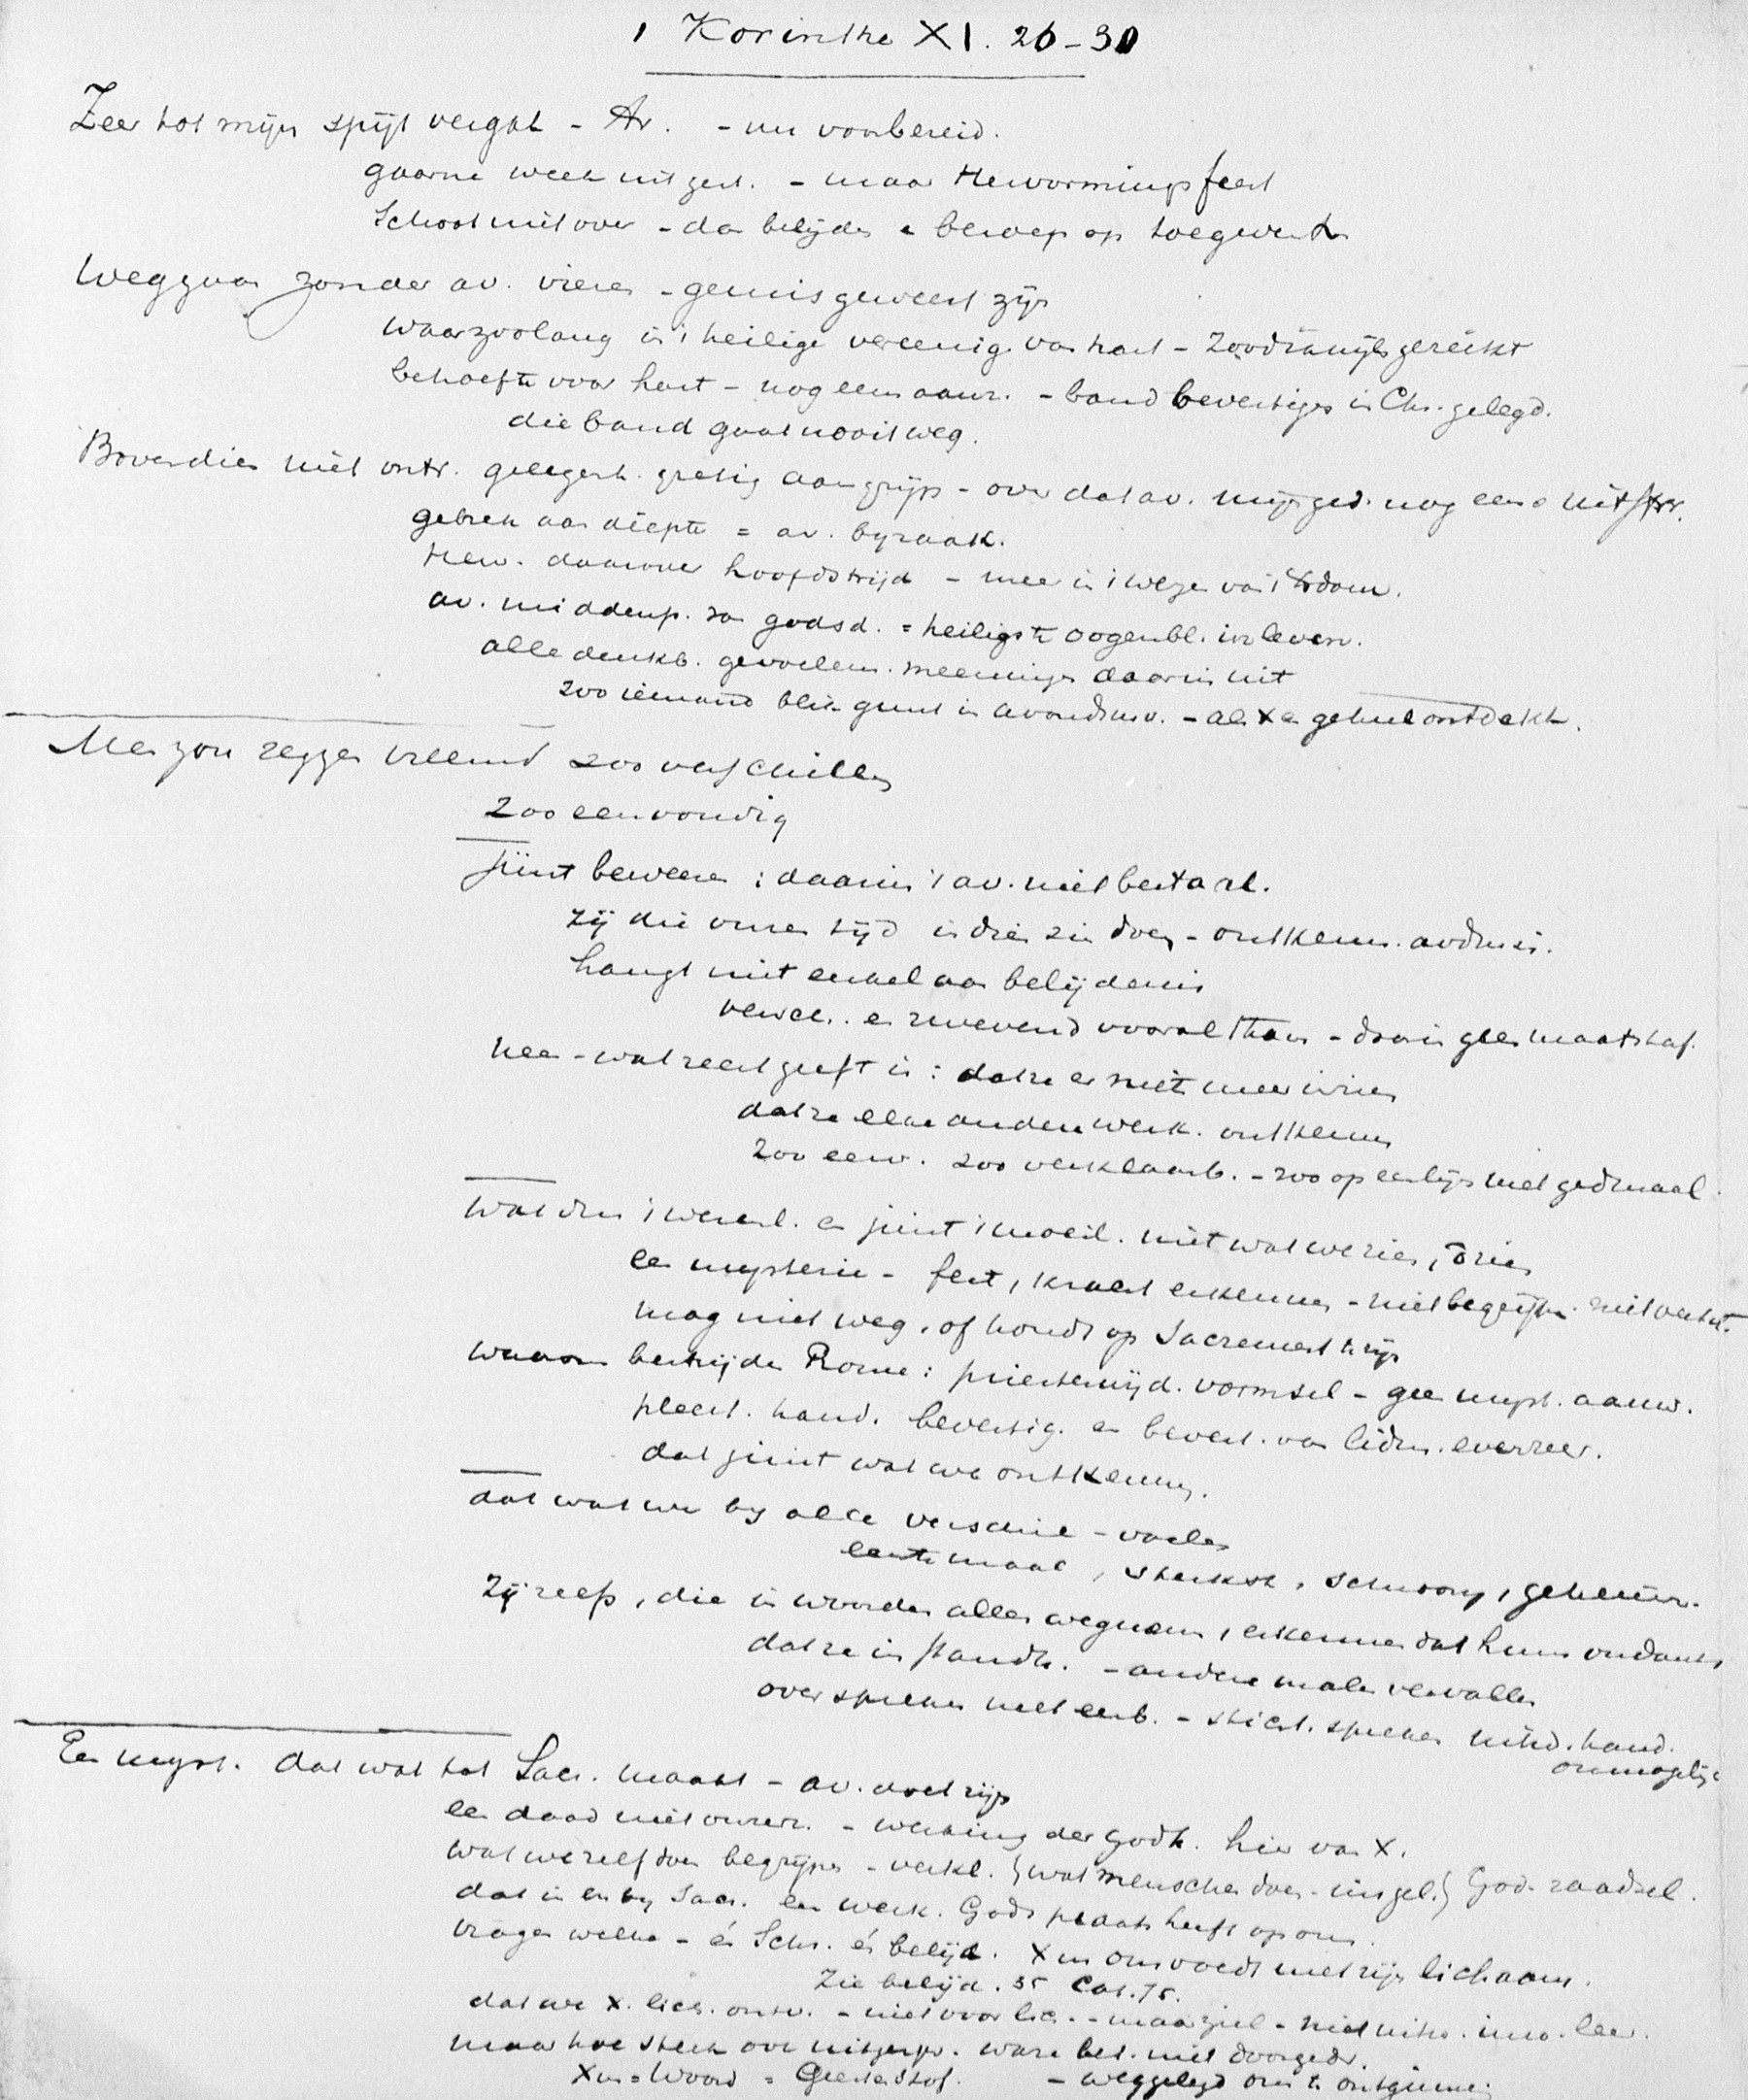 1 Korinthe XI. 26-30
Zeer tot mijn spijt - Av. - nu voorbereid.
gaarne week uitgest. - maar Hervormingsfeest
School niet over - dan belijden e beroep op
Weggaan zonder av. vieren - gemis geweest zijn
waar zoolang in 't heilige vereenig. van hart -
behoefte voor hart - nog eens aanr. - band bevestigen in Chr. gelegd.
die band gaat nooit weg.
Bovendien niet ontv. gelegenh. gretig aangrijpen - over dat av. mijn ged. nog eens uitspr.
gebrek aan diepte = av. byzaak.
Herv. daarover hoofdstrijd - mee in 't wezen van 't
av. middenp. van godsd. = heiligste oogenbl. in leven.
alle denkb. gevoelens. meeningen daarin uit
zoo iemand blik gunt in avondm. - al X e geheel ontdekt.
Men zou zeggen vreemd zoo verschillen
zoo eenvoudig
juist beweren: daarin 't av. niet bestaat.
zij die onzen tijd in dien zin doen - ontkenn. avdm.
hangt niet enkel aan belijdenis
en zwevend vooral thans - daarin geen maatstaf.
neen - wat recht geeft is: dat ze er niet meer in zien
dat ze elke andere werk. ontkennen
zoo eenv. zoo verklaarb. - zoo op eenlijn met gedmaal
Wat dan 't wezenl. en juist 't moeil. niet wat we zien, zien
een mysterie - feit, kracht erkennen - niet begrijpen.
mag niet weg, of houdt op Sacrament te zijn
waarom bestrijden Rome: priesterwijd. vormsel - geen myst. aanw.
plecht. hand. bevestig. en bevest. van lidm. evenzeer.
dat juist wat we ontkennen.
dat wat we by alle verschil - voelen
eerste maal, , , geheim.
Zij zelfs, die in woorden alles wegnem, erkennen dat hun ondanks
dat ze in standh. - andere malen vervallen
over spreken met eerb. - sticht. spreken hand.
onmogelijk
Een myst. dat wat tot Sacr. maakt - av. doet zijn
een daad niet onzerz. - werking der Godh. hier van X.
wat we zelf doen begrijpen - verkl. { wat menschen doen - } God raadsel.
dat in en by Sacr. een werk. Gods plaats heeft op ons.
vragen welke - én Schr. én belijd. Xus ons voedt met zijn lichaam.
Zie belijd. 35 Cat. 75.
dat we X. lich. ontv. - niet voor lich. - maar ziel - niet uitw. inw. leer.
maar hoe sterk ook uitgespr. ware bet. niet doorgedr.
Xus = Woord = - weggelegd om te